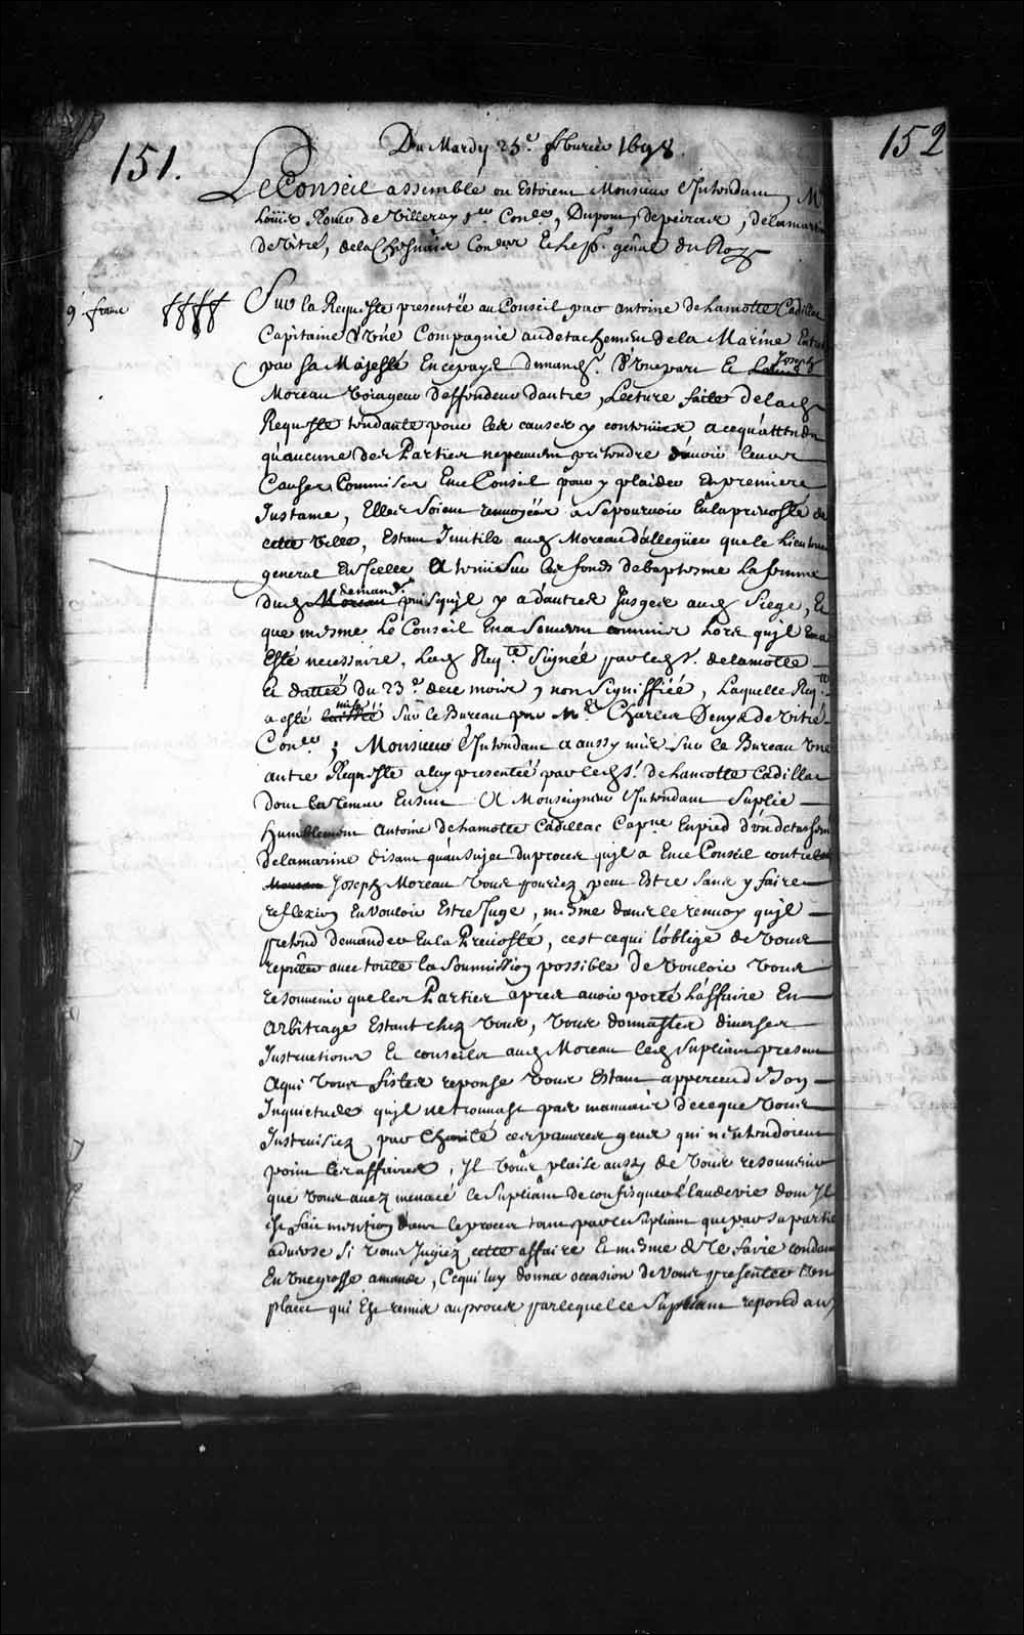 151.
152
Du Mardy 25.e feburier 1698.
Le Conseil assemblé ou Estoient Monsieur L'Intendant, Mes
Louis Rouer de Villeray p.er Con.er, Dupont, depeiras, delamartin
devitré, dela Chesnaie Con.ers Et le p.r gñal du Roy
9 francs
Sur la Requeste presentée au Conseil par antoine de Lamotte Cadillac
Capitaine d'Vne Compagnie au detachement de la Marine Entret.
par sa Majesté En ce pays demand.r d'Vne part Et Joseph
Moreau Voiageur deffendeur dautre, Lecture faite de lad.
Requeste tendante pour les causes y contenües a ce qu'attendu
qu'aucune des Parties ne peuvent pretendre d'avoir leurs
Causes Commises En ce Conseil pour y plaider En premiere
Instance, Elles soient renvoyées a se pourvoir En la prevosté de
cette Ville, Estant Inutile aud. Moreau d'alleguer que le Lieutenant
general En icelle A tenu Sur les fonds de baptesme la femme
dud. demand.r puisqu'il y a d'autres Juges aud. Siege, Et
que mesme Le Conseil En a Souvent commis Lors qu'il En a
Esté necessaire, Lad. Req.te Signée par led. S.r delamotte
Et dattée du 23.e de ce mois, non Signiffiée, Laquelle Req.te
a esté mise Sur le Bureau par M.e Charles Denys de Vitré
Con.er, Monsieur L'Intendant a aussy mis Sur le Bureau Vne
autre Requeste a luy presentée par led. S.r de Lamotte Cadillac
dont la teneur Ensuit A Monseigneur L'Intendant Suplie
humblement Antoine de Lamotte Cadillac Cap.ne En pied d'Vn detachem.t
de la marine disant qu'au Sujet du proces qu'il a En ce Conseil contre
Joseph Moreau Vous pouriez peut Estre Sans y faire
reflexion En vouloir Estre Juge, mesme dans le renvoy qu'il
pretend demander En la Prevosté, c'est ce qui l'oblige de vous
reputer avec toute la Soumission possible De vouloir Vous
resouvenir que les Parties apres avoir porté L'affaire En
Arbitrage Estant chez Vous, Vous donnastes diverses
Instructions Et conseils aud. Moreau led. Supliant present
A qui Vous fistes reponse Vous Estant apperceu de Son
Inquietude qu'il ne trouvast pas mauvais de ce que Vous
Instruisiez par Charité ces pauvres gens qui n'entendoient
point les affaires, Il Vous plaise aussy de Vous resouvenir
que Vous avez menacé le Supliant de confisquer L'eaudevie dont Il
Est fait mention dans le proces tant par le Supliant que par Sa partie
adverse Si Vous Jugiez cette affaire Et mesme de le faire condam.
En Vne grosse amande, Ce qui luy donna occasion de Vous presenter Vn
placet qui Est remis au proces par lequel le Supliant repond au